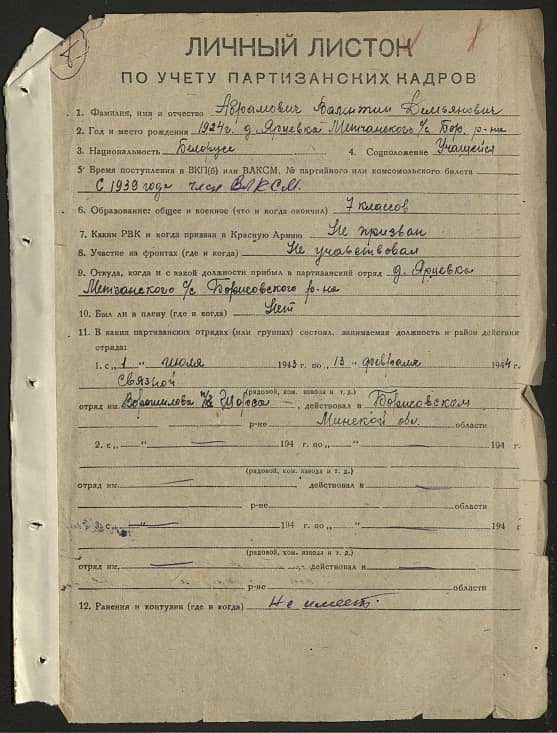 ЛИЧНЫЙ ЛИСТОК
ПО УЧЕТУ ПАРТИЗАНСКИХ КАДРОВ
1. Фамилия, имя и отчество Абрамович Валентин Демьянович
2. Год и место рождения 1924 г. д. Ярцевка Метчанского с/с Бор. р-на
3. Национальность Белорус 4. Соцположение Учащейся
5. Время поступления в ВКП(б) или ВЛКСМ, № партийного или комсомольского билета
С 1939 года член ВЛКСМ.
6. Образование: общее и военное (что и когда окончил) 7 классов
7. Каким РВК и когда призван в Красную Армию Не призван
8. Участие на фронтах (где и когда) Не учавствовал
9. Откуда, когда и с какой должности прибыл в партизанский отряд д. Ярцевка
Метчанского с/с Борисовского р-на
10. Был ли в плену (где и когда) Нет
11. В каких партизанских отрядах (или группах) состоял, занимаемая должность и район действия
отряда:
1. с „1“ июля 1943 г. по „13“ февраля 1944 г.
связной
(рядовой, ком. взвода и т. д.)
отряд им. Ворошилова Щорса, действовал в Борисовском
р-не Минской обл. области
2. с „ “ 194 г. по „ “ 194 г.
(рядовой, ком. взвода и т. д.)
отряд им. действовал в
р-не области
с „ “ 194 г. по „ “ 194 г
(рядовой, ком. взвода и т. д.)
отряд им. , действовал в
р-не области
12. Ранения и контузии (где и когда) Не имеет.